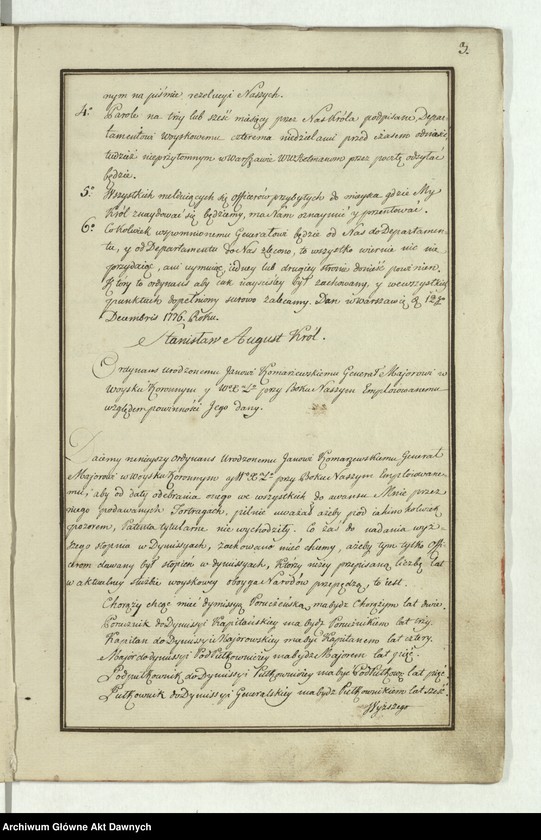 3.
nym na piśmie rezolucyi Naszych.
4.° Parole na trzy lub sześć miesięcy przez Nas Króla podpisane, Depar-
tamentowi Woyskowemu czterema niedzielami przed czasem odnosić
tudzież nieprzytomnym w Warszawie WW Hetmanom przez pocztę odsyłać
będzie.
5.° Wszystkich meldujących się officerów przybytych do mieysca gdzie My
Król znaydować się będziemy, ma Nam oznaymić y prezentować.
6.° Cokolwiek wspomnionemu Generałowi będzie od Nas do Departamen-
tu, y od Departamentu do Nas zlecono, to wszystko wiernie nic nie
przydając, ani uymując, iedney lub drugiey stronie donieść powinien.
Który to ordynans aby iak nayściśley był zachowany, y we wszystkich
punktach dopełniony surowo zalecamy. Dan w Warszawie d. 12
Decembris 1776. Roku.
Stanisław August Król.
Ordynans urodzonemu Janowi Komarzewskiemu Generał Majorowi w
Woysku Koronnym y W° X° L° przy Boku Naszym Emploiowanemu
względem powinności Jego dany.
Daiemy ninieyszy Ordynans Urodzonemu Janowi Komarzewskiemu Generał
Majorowi w Woysku Koronnym y W° X° L° przy Boku Naszym Emploiowane-
mu; aby od daty odebrania onego we wszystkich do awansu Mnie przez
niego podawanych Fortragach, pilnie uważał ażeby pod iakimkolwiek
pozorem, Patenta tytularne nie wychodziły. Co zaś do nadania wyż-
szego stopnia w Dymissyach, zachowano mieć chcemy, ażeby tym tylko Offi-
cerom dawany był stopień w dymissyach, którzy niżey przepisaną liczbę lat
w aktualney służbie woyskowey oboyga Narodów przepędzą, to iest.
Chorąży chcąc mieć dymissyą Poruczniką, ma bydź Chorążym lat dwie.
Porucznik do Dymissyi Kapitańskiey ma bydź Porucznikiem lat trzy.
Kapitan do Dymissyi Majorowskiey ma być Kapitanem lat cztery.
Major do dymissyi Podpułkowniczey ma bydź Majorem lat pięć.
Podpułkownik do Dymissyi Pułkowniczey ma być Podpułkow: lat pięć
Pułkownik do Dymissyi Generalskiey ma bydź Pułkownikiem lat sześć.
Wyższego
Archiwum Główne Akt Dawnych